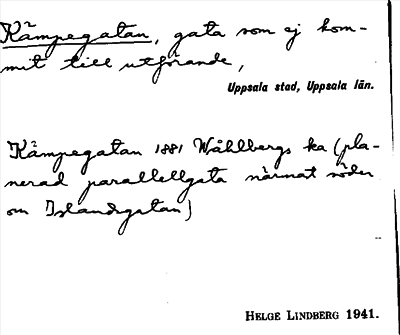 Kämpegatan, gata som ej kom-
mit till utförande,
Uppsala stad, Uppsala län.
Kämpegatan 1881 Wåhlbergs ka (pla-
nerad parallellgata närmat söder
om Islandsgatan)
HELGE LINDBERG 1941.